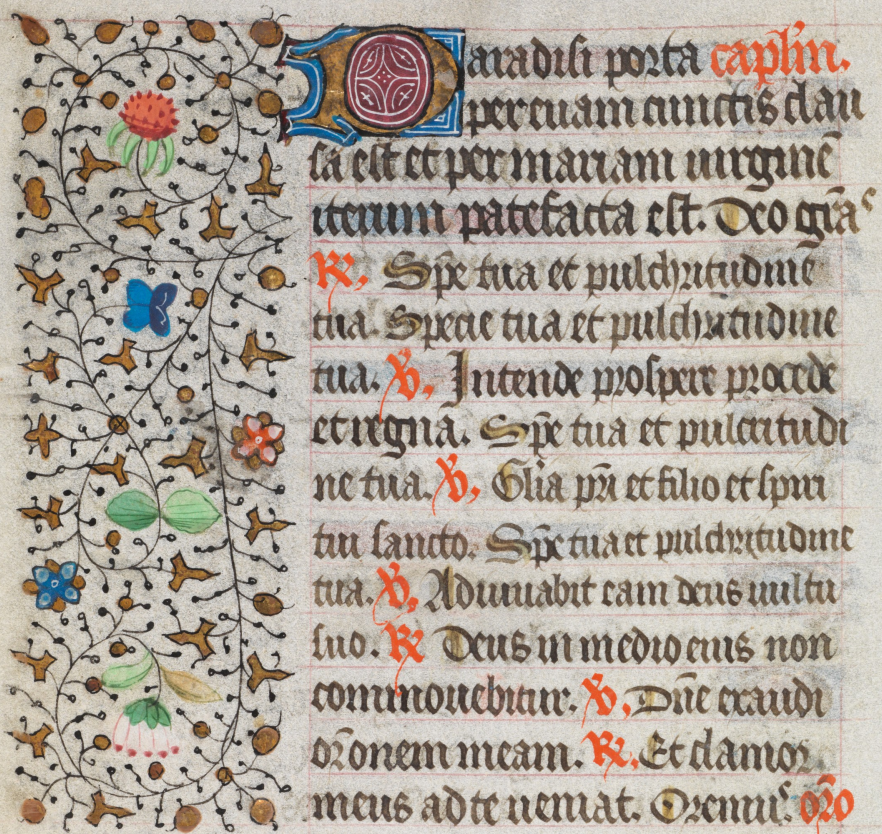 Paradisi porta caplm.
per euam cunctis clau
sa est et per mariam uirginē
iterum patefacta est. Deo grās
℟. Spē tua et pulchritudine
tua. Specie tua et pulchritudine
tua. ℣. Intende prospere procede
et regna. Spē tua et pulcritudi
ne tua. ℣. Glīa pr̄i et filio et spiri
tui sancto. Spē tua et pulchritudine
tua. ℣. Adiuuabit eam deus uultu
suo. ℟ Deus in medio eius non
commouebitur. ℣. Dn̄e exaudi
or̄onem meam. ℟. Et clamor
meus ad te ueniat. Oremus. or̄o